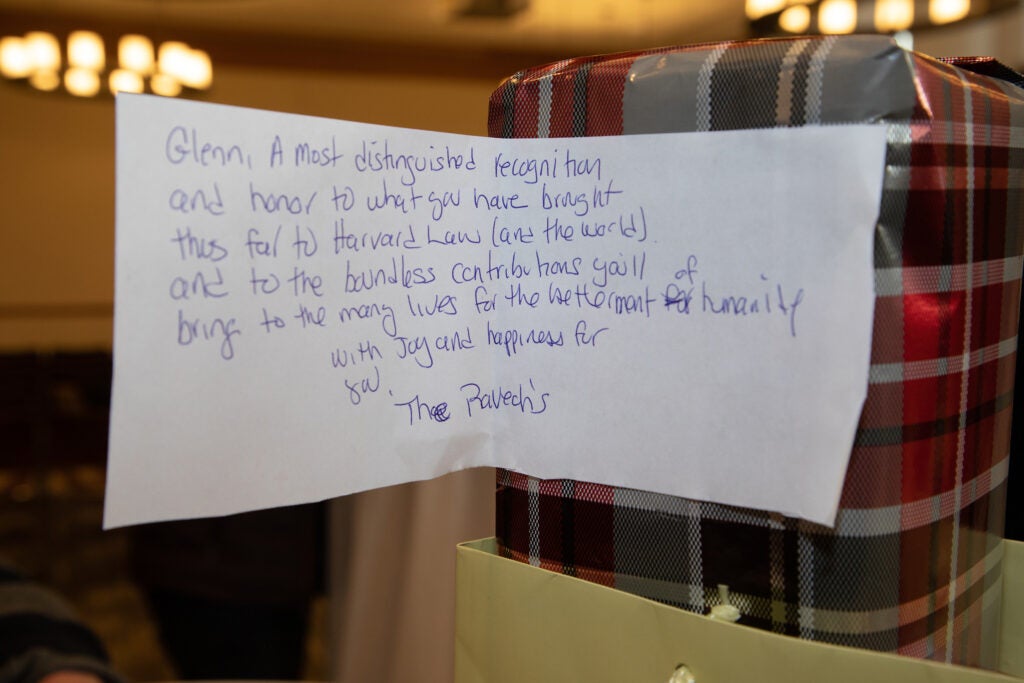 Glenn, A most distinguished recognition
and honor to what you have brought
thus far to Harvard Law (and the world).
and to the boundless contributions you'll
bring to the many lives for the betterment of humanity
with Joy and happiness for
you.
The Ravech's